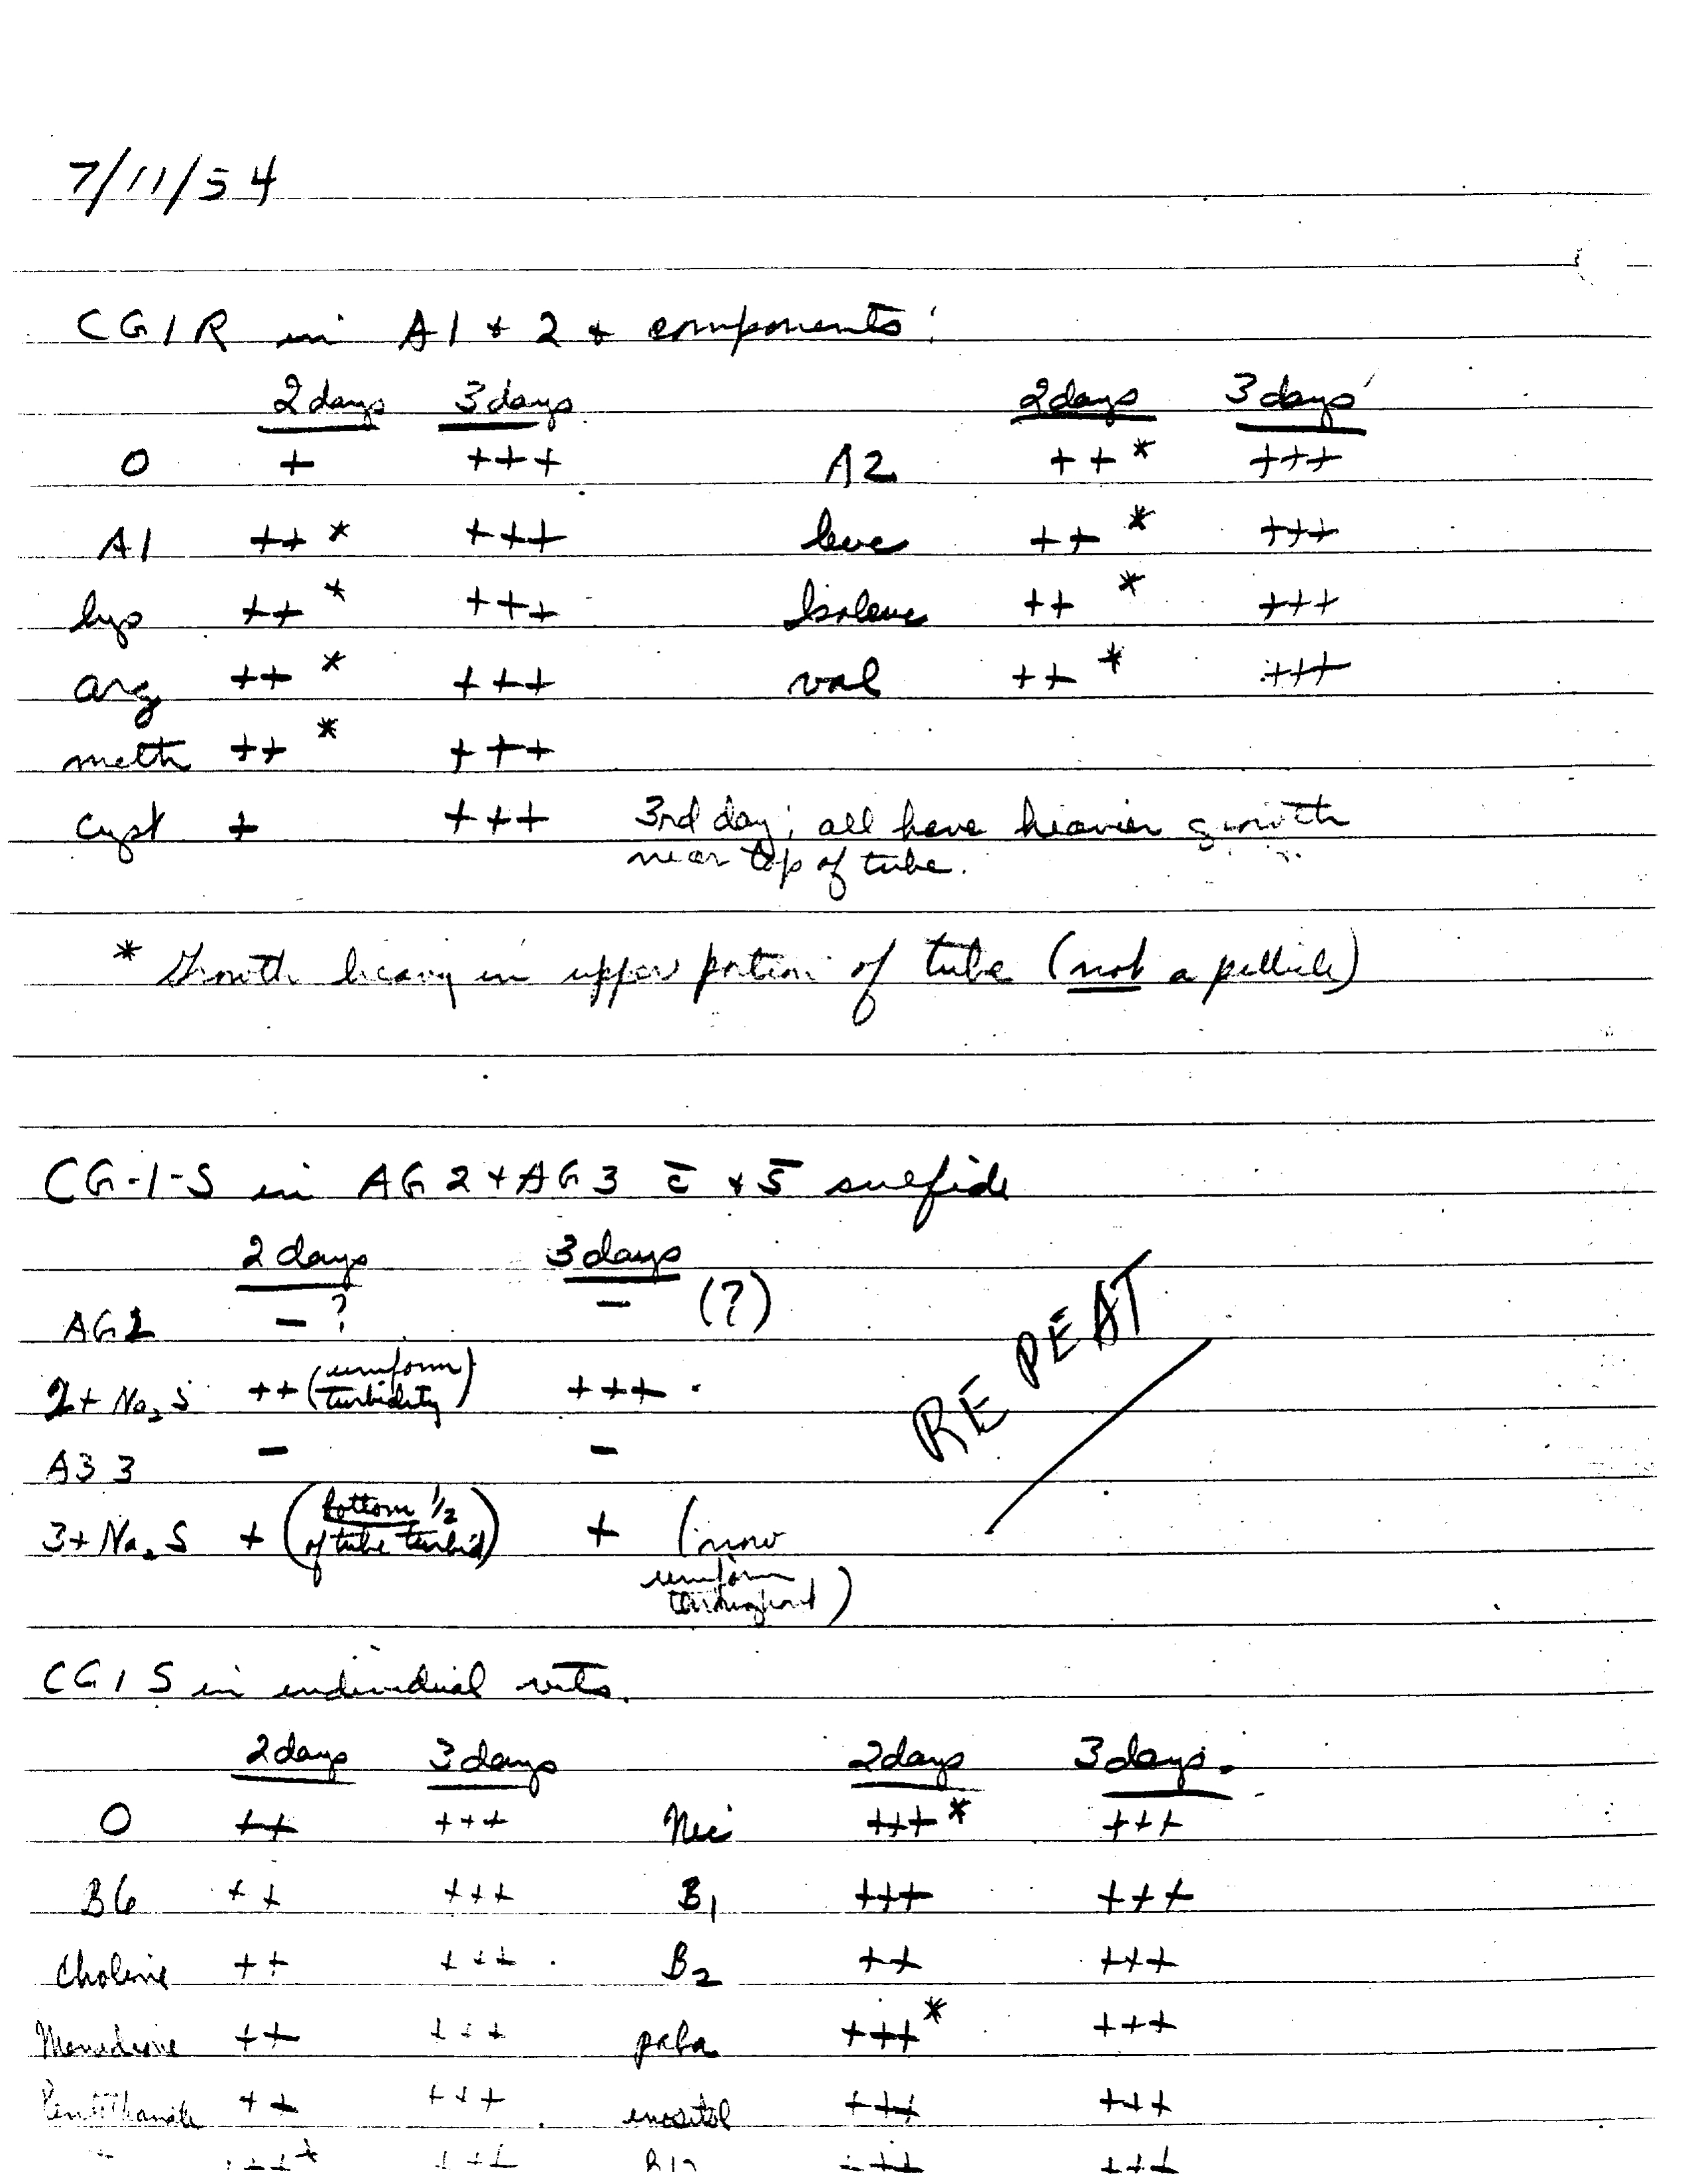 7/11/54
CG1R in A1 + 2 + components:
2 days 3 days 2 days 3 days
0 + +++ A2 ++* +++
A1 ++* +++ leuc ++* +++
lys ++* +++ Isoleuc ++* +++
arg ++* +++ val ++* +++
meth ++* +++
cyst + +++ 3rd day; all have heavier growth
near top of tube.
* Growth heavy in upper portion of tube (not a pellicle)
CG-1-S in AG2 + AG3 c̄ + s̄ sulfide
2 days 3 days
AG2 - ? - (?)
2+ Na₂S ++ (uniform turbidity) +++
REPEAT
A33 - -
3+ Na₂S + (bottom 1/2 of tube turbid) + (now
uniform
throughout)
CG1S in individual vits.
2 days 3 days 2 days 3 days.
0 ++ +++ Nic +++* +++
B6 ++ +++ B₁ +++ +++
Choline ++ +++ B₂ ++ +++
Menadione ++ +++ paba +++* +++
++ +++ inositol +++ +++
+++* +++ B12 +++ +++